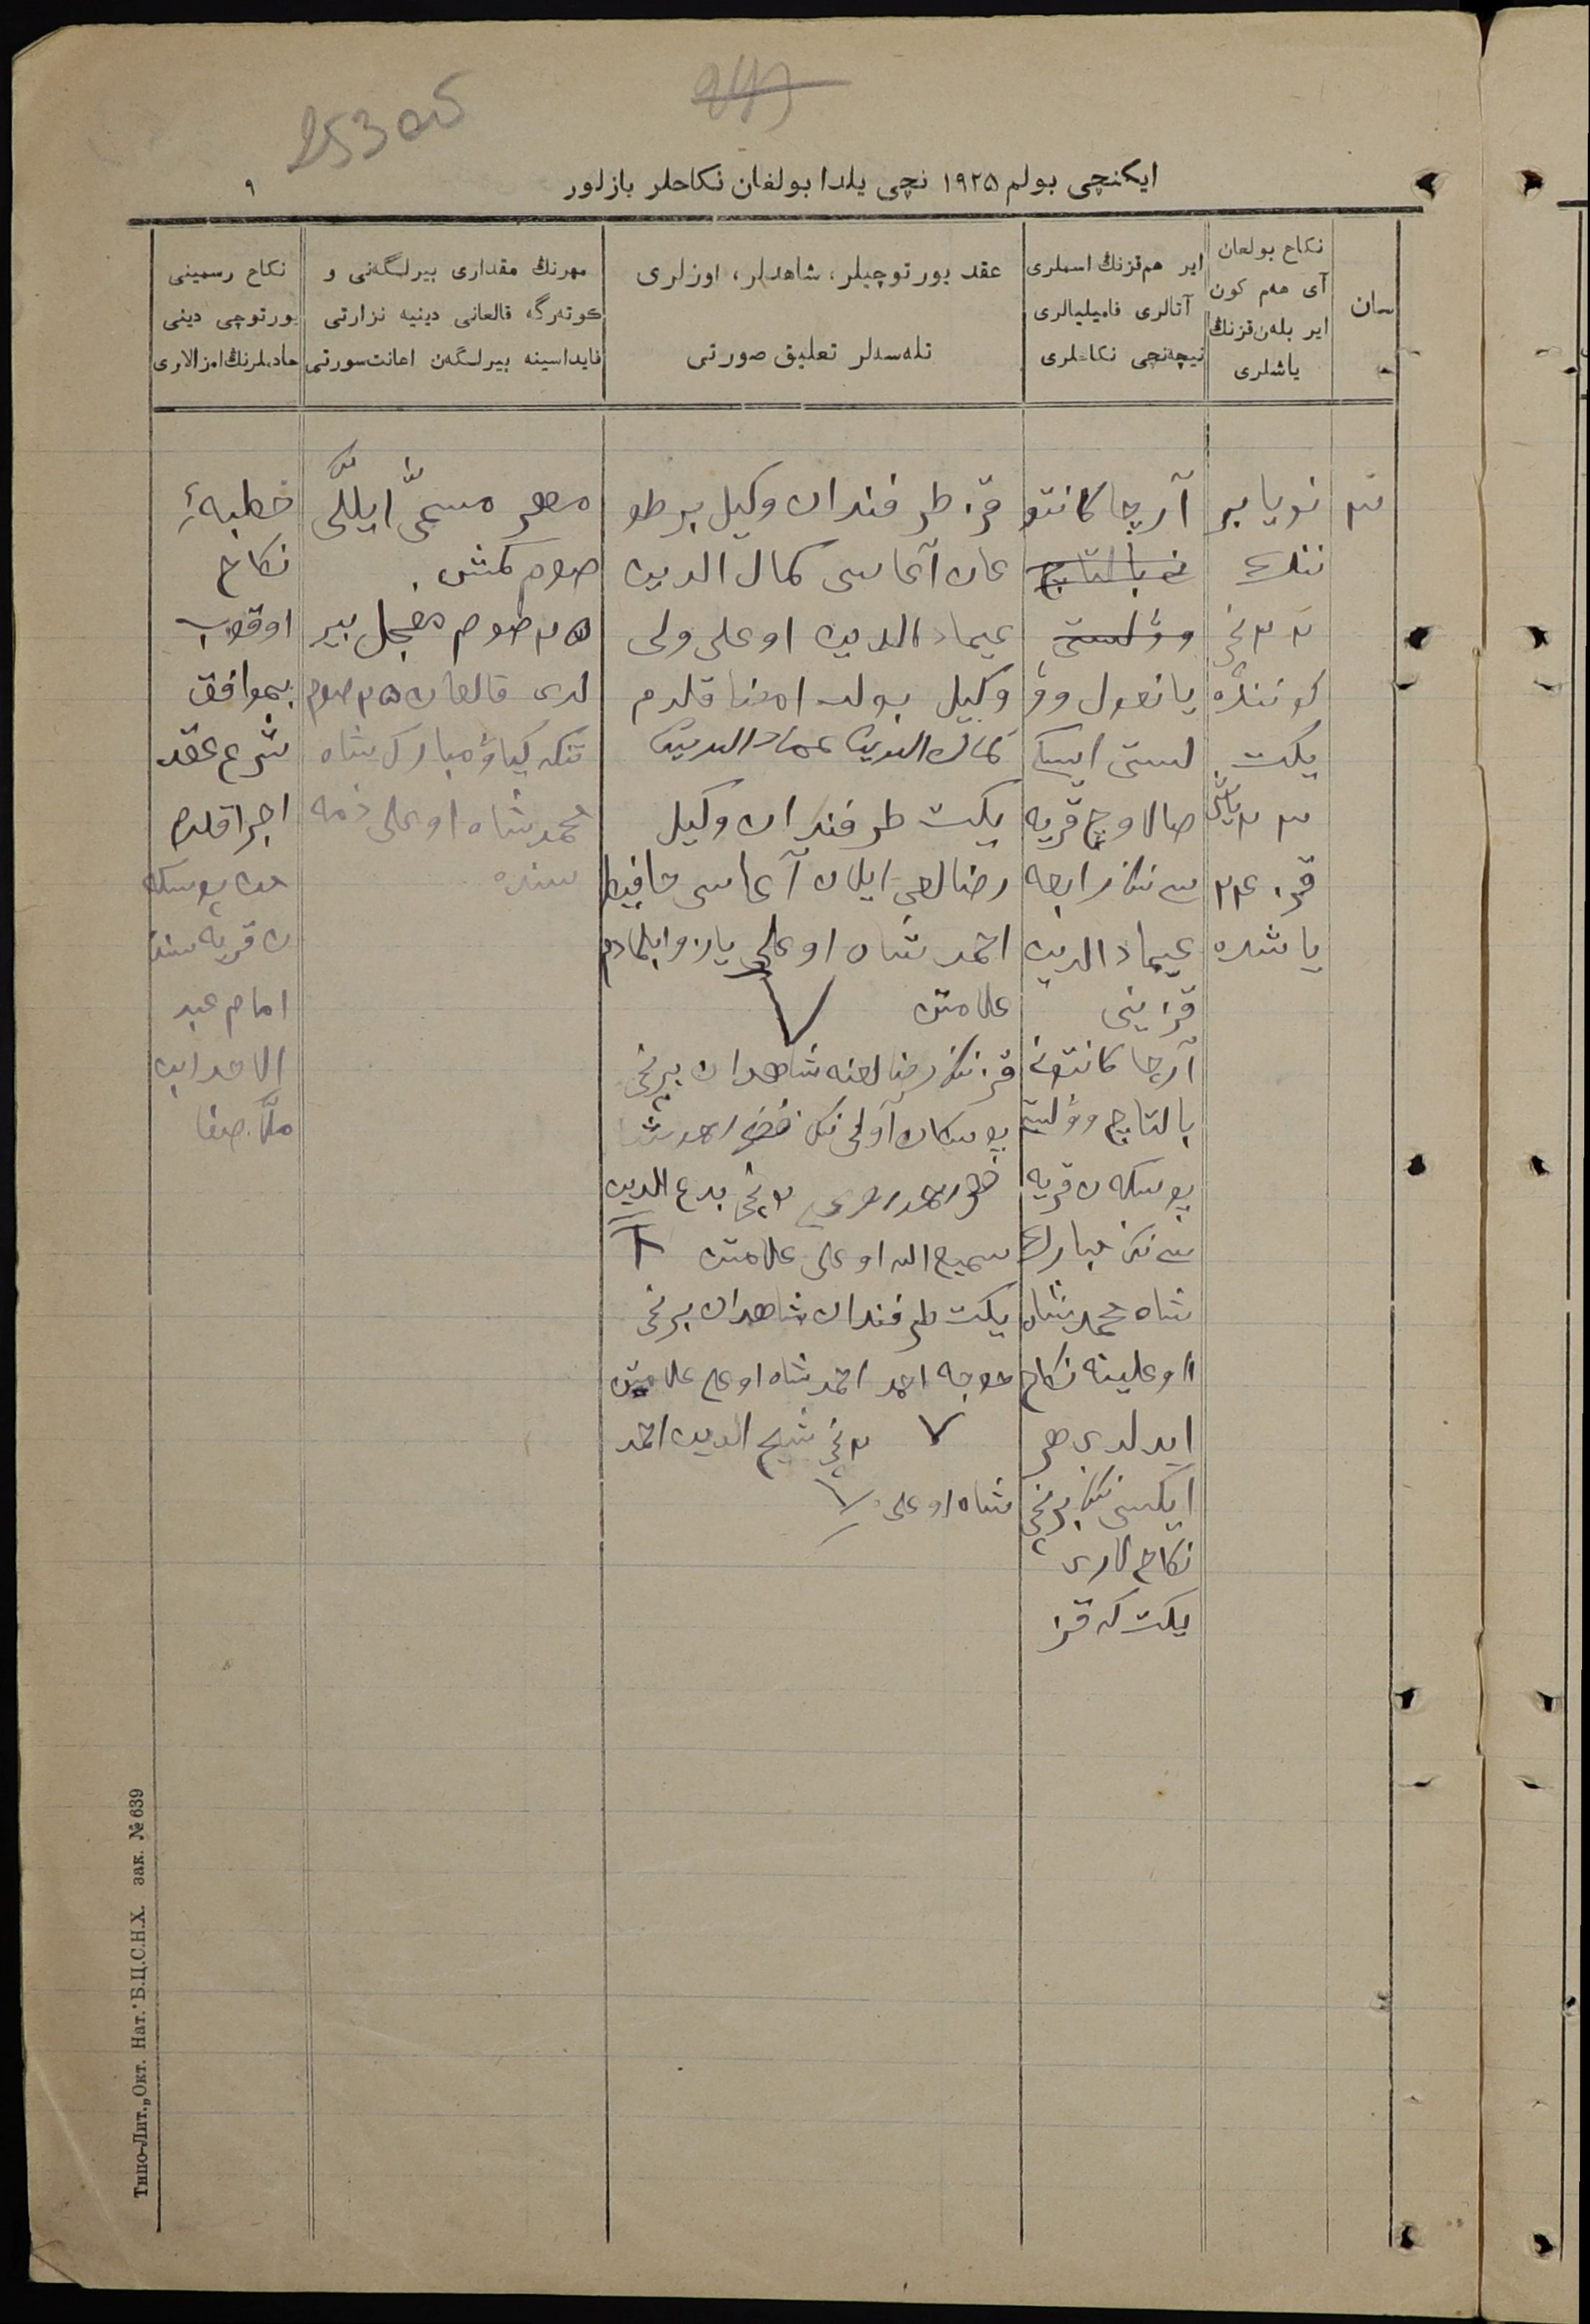 25305
ایکنچی بولم ۱۹۲۵ نچی یلدا بولغان نکاحلر یازلور
۹
سان
نکاح بولغان
آی هەم کون
ایر بلەن قزنڭ
یاشلری
ایر هم قزنڭ اسملری
آتالری فامیلیالری
نیچەنچی نکاحلری
عقد یورتوچیلر، شاهدلر، اوزلری
تلەسەلر تعلیق صورتی
مهرنڭ مقداری بیرلگەنی و
کوتەرگە قالغانی دینیە نزارتی
فایداسینە بیرلگەن اعانت سورتی
نکاح رسمینی
یورتوچی دینی
خادملرنڭ امزالاری
۳
نویابر
ننڭ
۲۲ نچی
کوننده
یکت
۲۳ یاش
قز ۲۴
یاشده
آرچا کانتو
نی بالتاچ
وۋلستی
یانغول وو
لستی ایسکی
صالاوچ قریه
سی ننڭ رابعه
عیماد الدین
قزینی
آرچا کانتونی
بالتاچ وولستی
بوسکه ن قریه
سی ننڭ مبارك
شاه محمدشاه
اوغلینه نکاح
ایدلدی هر
ایکسی ننڭ برنچی
نکاح لاری
یکت که قز
قز طرفندان وکیل بر طو
غان آغاسی کمال الدین
عیماد الدین اوغلی ولی
وکیل بولب امضا قلدم
کمال الدین عماد الدین
یکت طرفندان وکیل
رضالغی ایلان آغاسی حافیظ
احمد شاه اوغلی یازو ابلمادم
علامتی V
قز ننڭ رضالغنه شاهدان برنچی
بوسکان آولی ننڭ
۲ نچی بدیع الدین
سمیع الله اوغلی علامتی
یکت طرفندان شاهدان برنچی
خوجه احمد احمد شاه اوغلی علامتی
V ۲ نچی شیخ الدین احمد
شاه اوغلی V
مهر مسمّی ایللّی
صوم کمش.
۲۵ صوم معجل بیر
لدی قالغان ۲۵ صوم
تنکه کیاۋ مبارك شاه
محمد شاه اوغلی ذمه
سنده
خطبهٔ
نکاح
اوقوب
بموافق
شرع عقد
اجرا قلدم
بوسکه
ن قریه سننڭ
امام عبد
الاحد ابن
ملّا صفا
Типо-Лит. „Окт. Нат." Б.Ц.С.Н.Х. зак. № 639